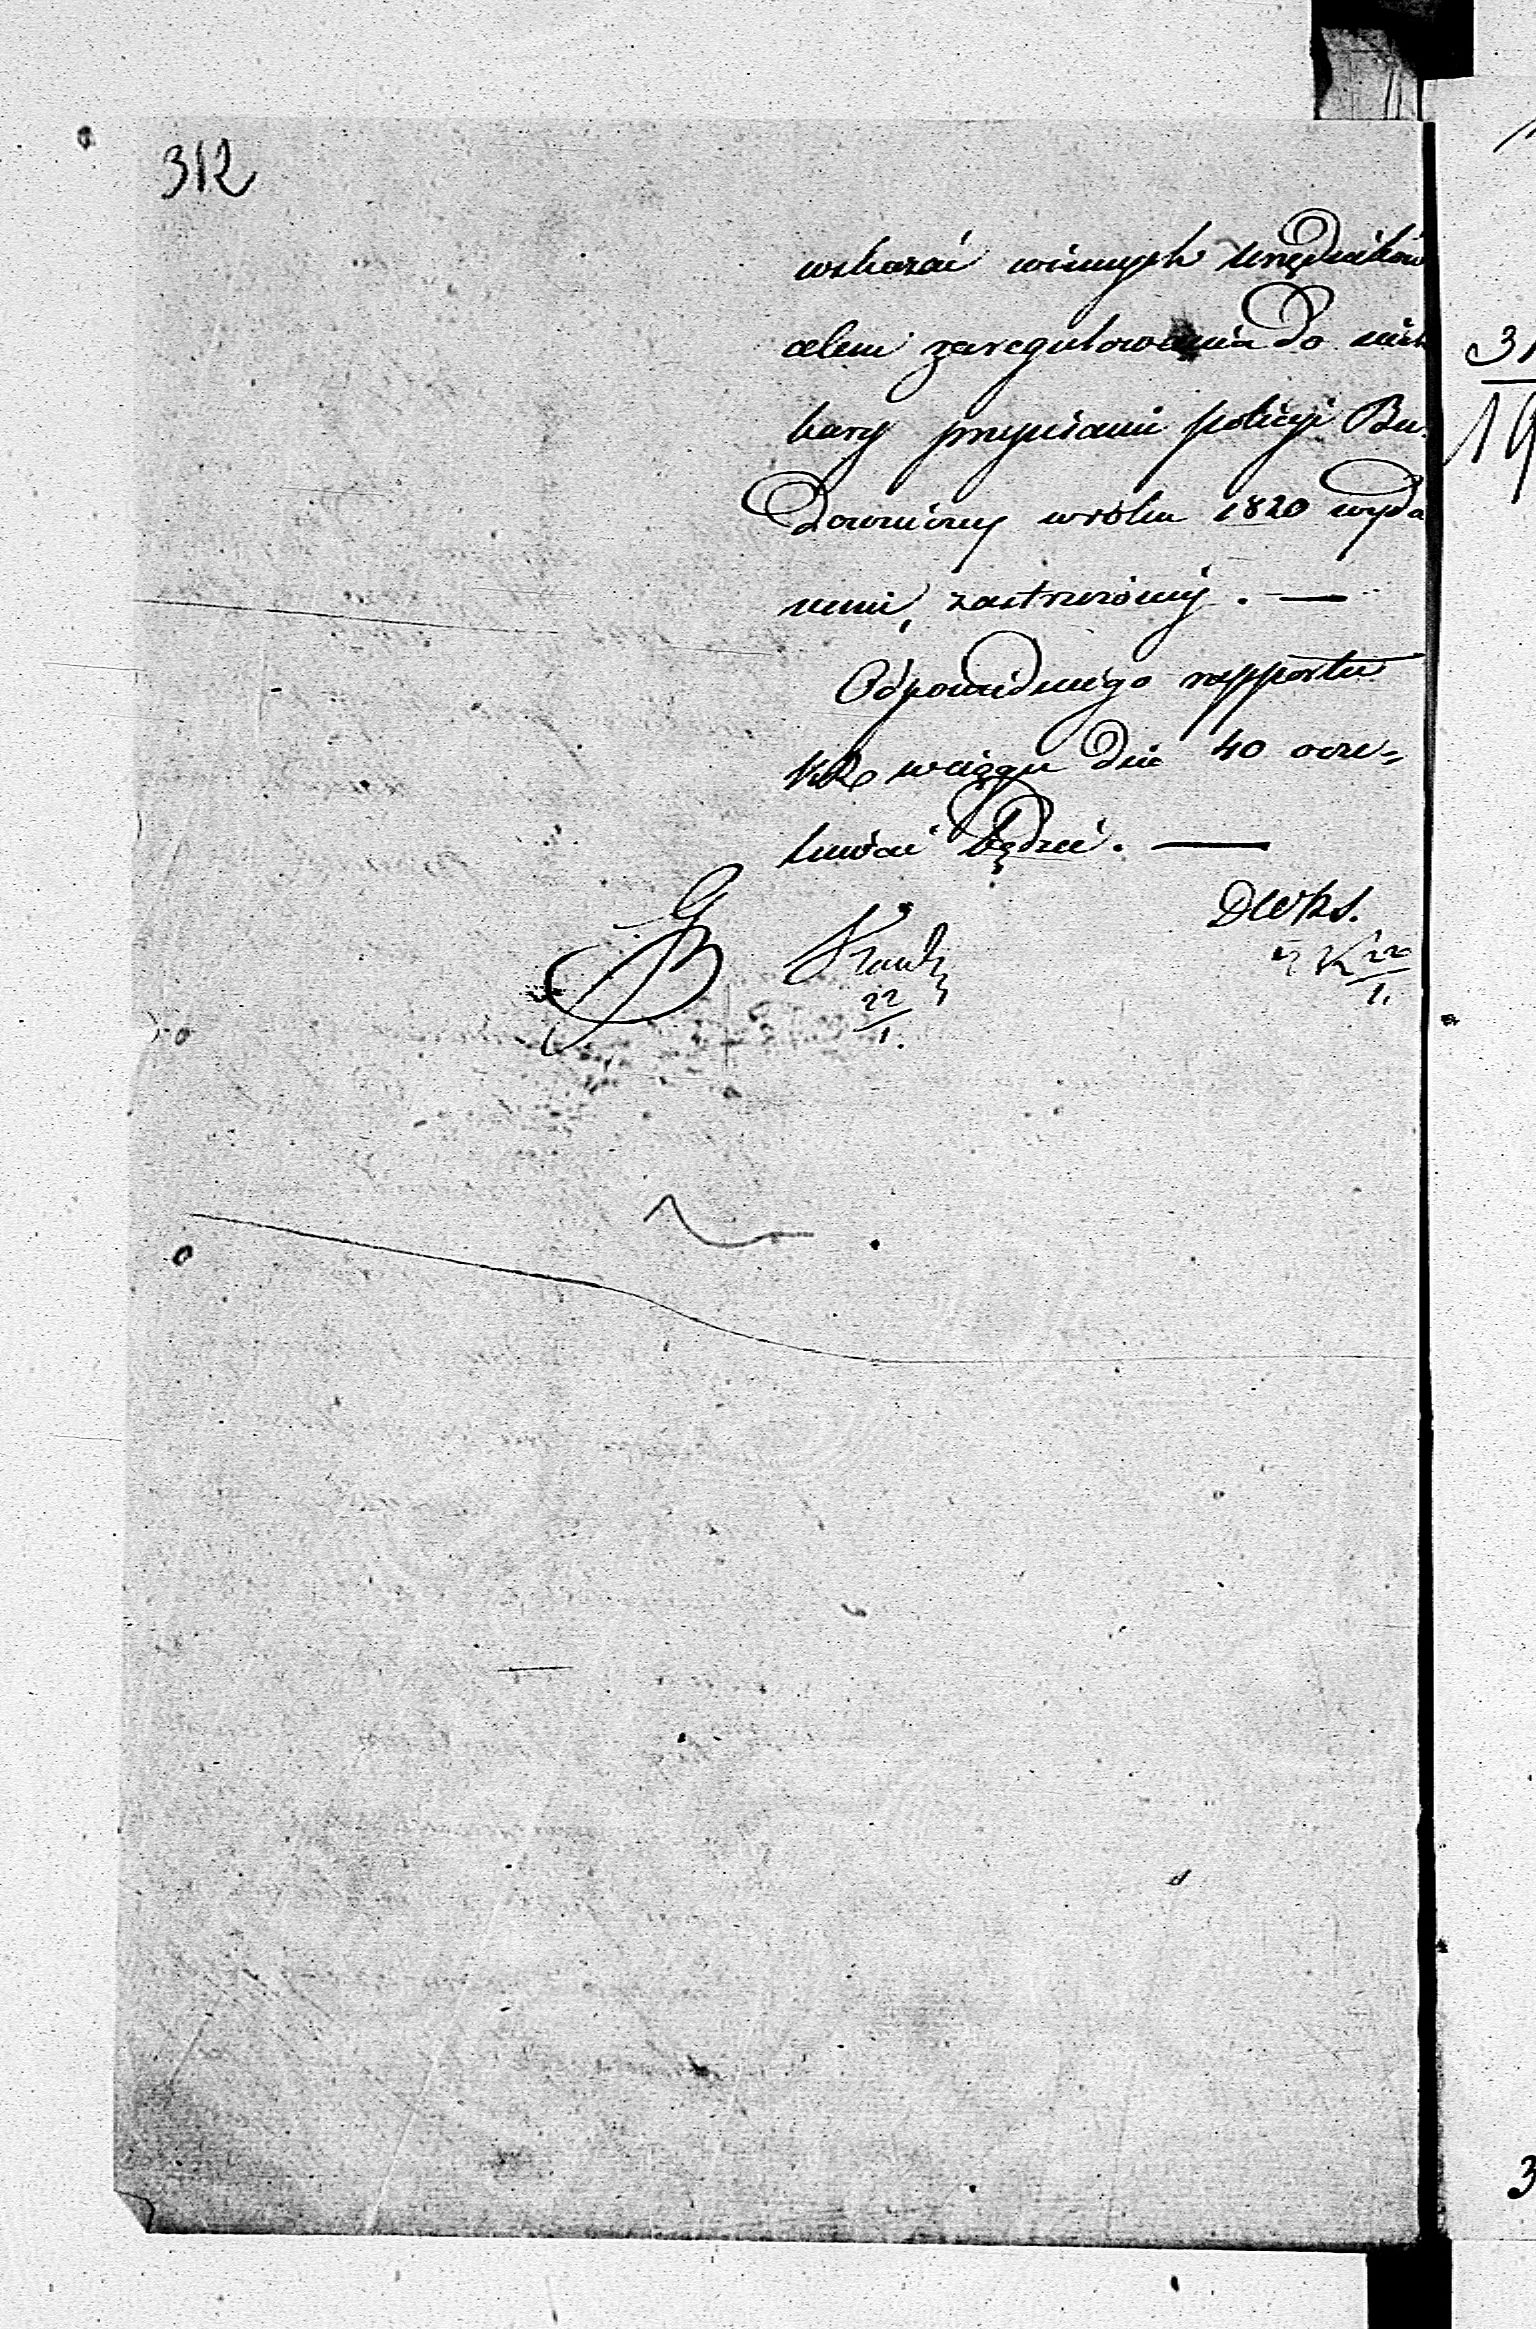 312
wskazać winnych urzędników
celem zaregulowania do nich
kary przepisami policyi Bu-
downiczey w roku 1820 wyda
nemi, zastrzeżoney. —
Odpowiedniego rapportu
KR w ciągu dni 40 ocze-
kiwać będzie. —
DWKs.
22
1.
22
1.